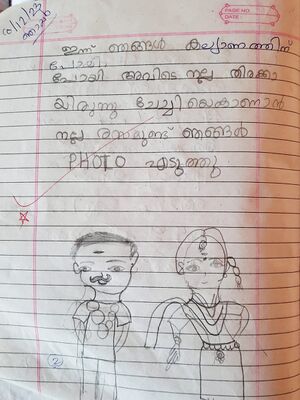 10/12/23
ഞായർ
PAGE NO.:
DATE:
ഇന്ന് ഞങ്ങൾ കല്യാണത്തിന്
പോയി
പോയി. അവിടെ നല്ല തിരക്കാ
യിരുന്നു ചേച്ചി യെകാണാൻ
നല്ല രസമുണ്ട് ഞങ്ങൾ
PHOTO എടുത്തു.
2